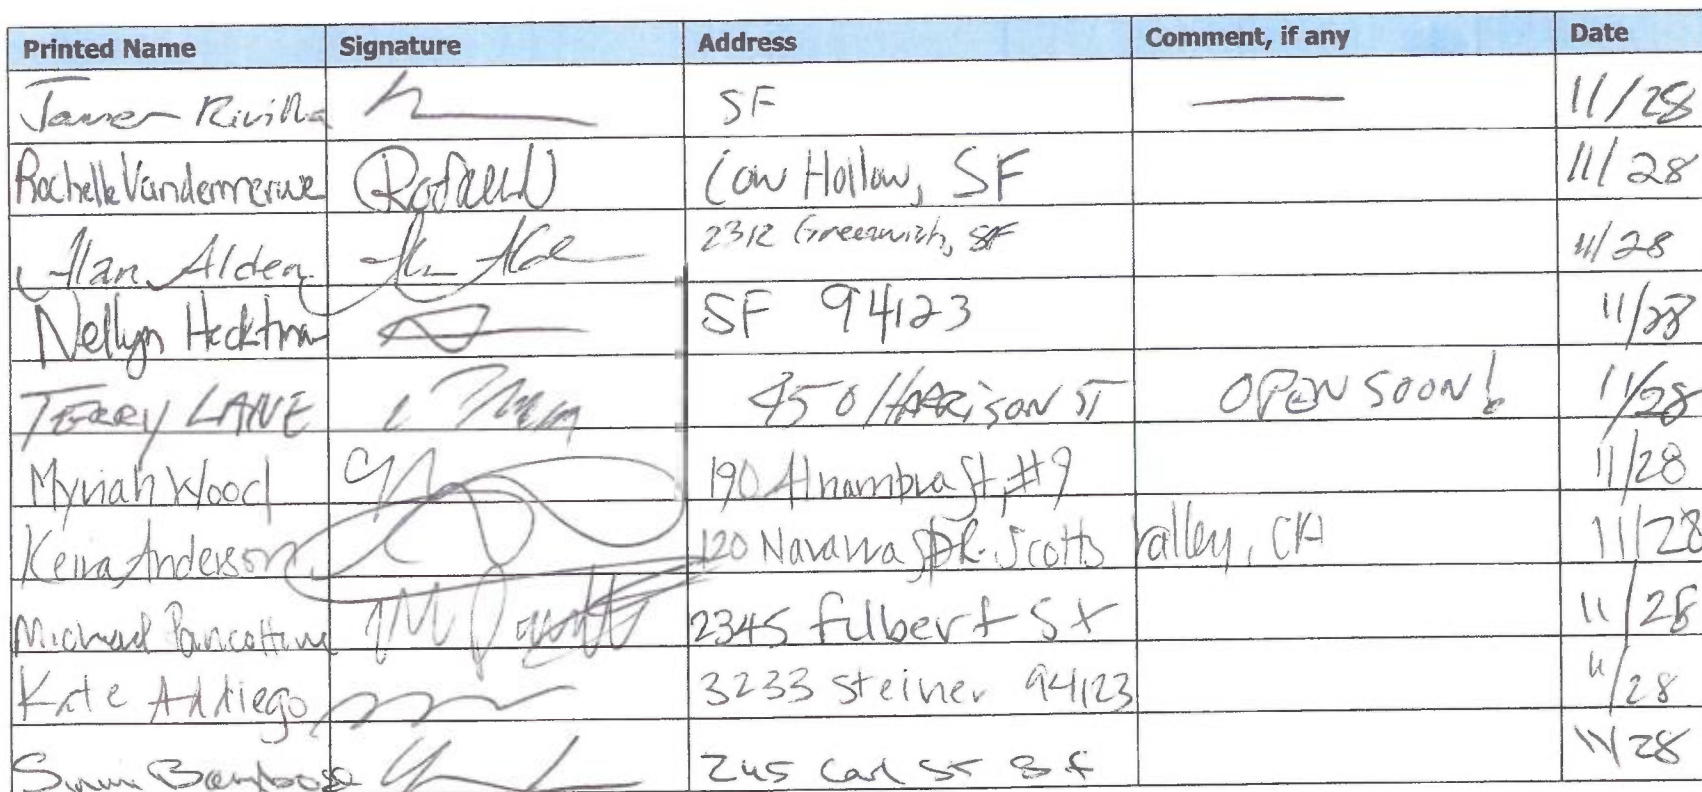 Printed Name Signature Address Comment, if any Date
Rivilla SF 11/28
Rochelle Vandermerwe Cow Hollow, SF 11/28
Alan Alden 2312 Greenwich, SF 11/28
Nellyn SF 94123 11/28
TERRY LANE 450 HARRISON ST OPEN SOON! 11/28
Myriah Wood 190 Alhambra St, #9 11/28
Keira Anderson 120 Navarra DR. Scotts Valley, CA 11/28
Michael 2345 filbert St 11/28
Kate Addiego 3233 Steiner 94123 11/28
245 Carl St SF 11/28